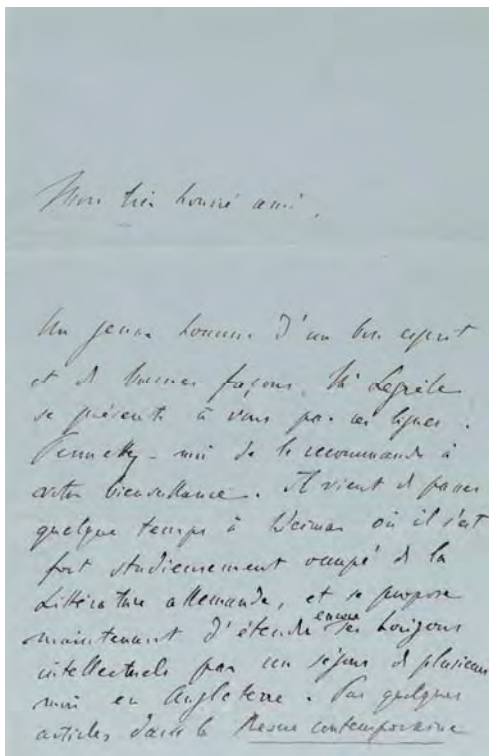 Mon très honoré ami,
Un jeune homme d'un bon esprit
et de bonnes façons, Mr Legrèle
se présente à vous par ces lignes.
Permettez-moi de le recommander à
votre bienveillance. Il vient de passer
quelque temps à Weimar où il s'est
fort studieusement occupé de la
Littérature allemande, et se propose
maintenant d'étendre encore ses horizons
intellectuels par un séjour de plusieurs
mois en Angleterre. Par quelques
articles dans la Revue contemporaine